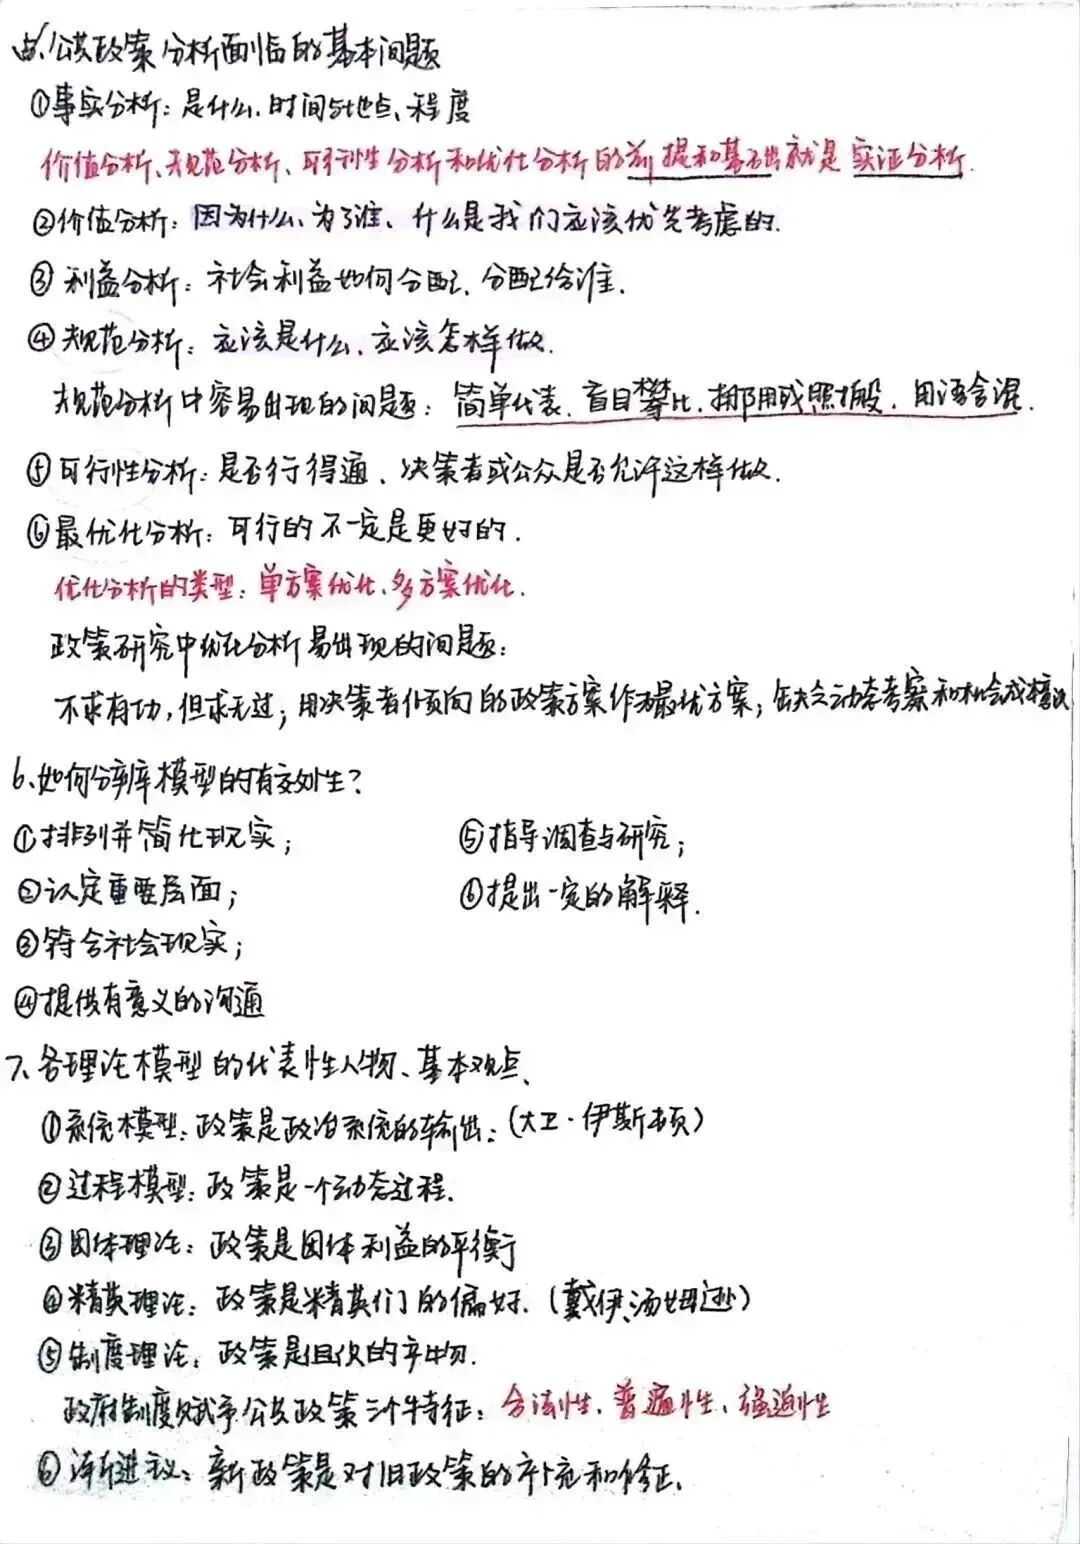 5、公共政策分析面临的基本问题
①事实分析：是什么、时间与地点、程度
价值分析、规范分析、可行性分析和优化分析的前提和基础就是实证分析.
②价值分析：因为什么、为了谁、什么是我们应该优先考虑的.
③利益分析：社会利益如何分配、分配给谁.
④规范分析：应该是什么、应该怎样做.
规范分析中容易出现的问题：简单代表、盲目攀比、挪用或照搬、用语含混.
⑤可行性分析：是否行得通、决策者或公众是否允许这样做.
⑥最优化分析：可行的不一定是更好的.
优化分析的类型：单方案优化、多方案优化.
政策研究中优化分析易出现的问题：
不求有功,但求无过；用决策者倾向的政策方案作为最优方案；缺乏动态考察和机会成本意识
6、如何分辨模型的有效性？
①排列并简化现实；
②认定重要层面；
③符合社会现实；
④提供有意义的沟通
⑤指导调查与研究；
⑥提出一定的解释.
7、各理论模型的代表性人物、基本观点、
①系统模型：政策是政治系统的输出：(大卫·伊斯顿)
②过程模型：政策是一个动态过程.
③团体理论：政策是团体利益的平衡
④精英理论：政策是精英们的偏好.(戴伊、汤姆逊)
⑤制度理论：政策是组织的产物.
政府制度赋予公共政策三个特征：合法性、普遍性、强迫性
⑥渐进主义：新政策是对旧政策的补充和修正.